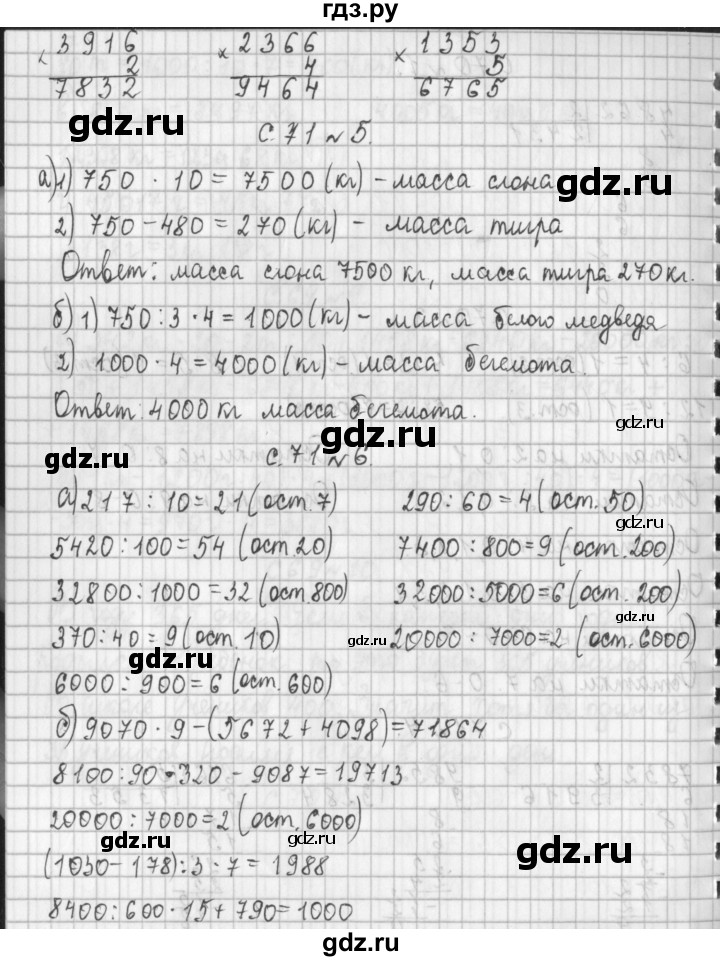 гдз.ру
3916 × 2366 × 1353
2 4 5
7832 9464 6765
gdz.ru
с. 71 №5.
gdz.ru
а) 1) 750 · 10 = 7500 (кг) - масса слона
2) 750 - 480 = 270 (кг) - масса тигра
Ответ: масса слона 7500 кг, масса тигра 270 кг.
б) 1) 750 : 3 · 4 = 1000 (кг) - масса белого медведя
2) 1000 · 4 = 4000 (кг) - масса бегемота.
Ответ: 4000 кг масса бегемота.
gdz.ru
gdz.ru
с. 71 №6.
gdz.ru
а) 217 : 10 = 21 (ост. 7) 290 : 60 = 4 (ост. 50)
gdz.ru
5420 : 100 = 54 (ост 20) 7400 : 800 = 9 (ост. 200)
32800 : 1000 = 32 (ост 800) 32000 : 5000 = 6 (ост. 200)
gdz.ru
370 : 40 = 9 (ост. 10) 20000 : 7000 = 2 (ост. 6000)
gdz.ru
gdz.ru
6000 : 900 = 6 (ост. 600)
б) 9070 · 9 - (5672 + 4098) = 71864
8100 : 90 · 320 - 9087 = 19713
20000 : 7000 = 2 (ост. 6000)
gdz.ru
gdz.ru
gdz.ru
(1030 - 178) : 3 · 7 = 1988
8400 : 600 · 15 + 790 = 1000
gdz.ru